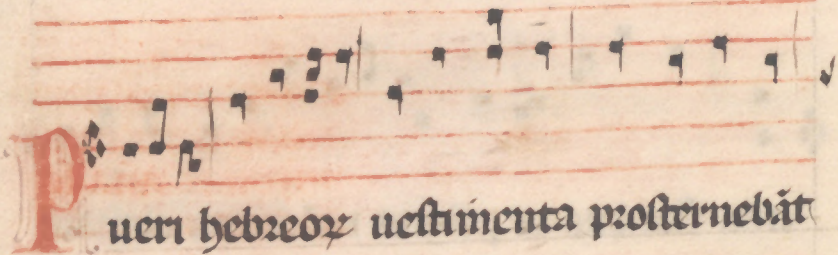 Pueri hebreoꝝ uestimenta prosternebāt